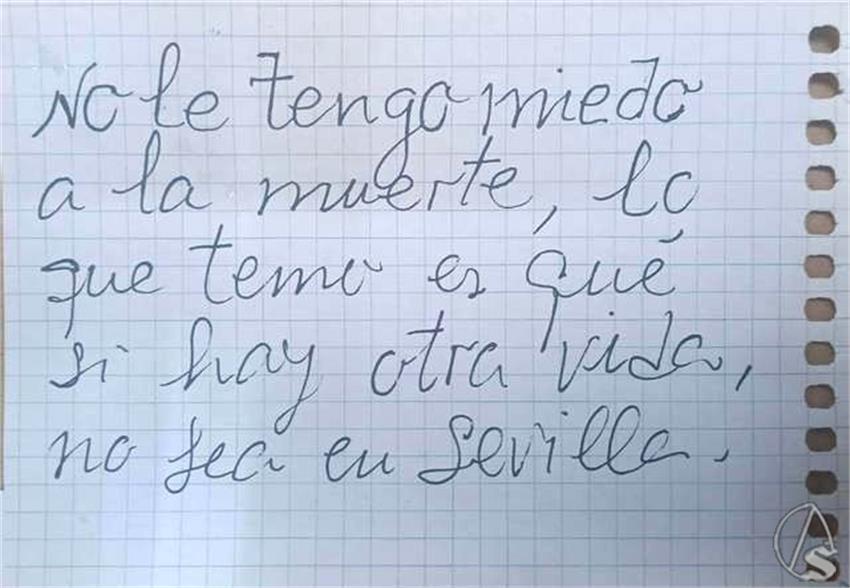 No le tengo miedo
a la muerte, lo
que temo es qué
si hay otra vida,
no sea en Sevilla.